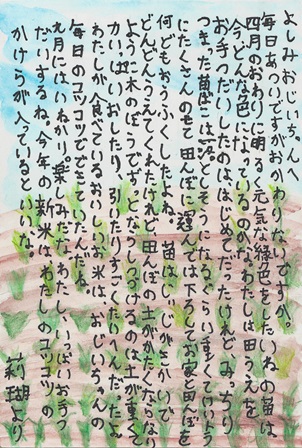 よしみおじいちゃんへ
毎日あついですがおかわりないですか。
四月のおわりに明るく元気な緑色をしたいねの苗は、
今どんな色になっているのかな。わたしは田うえを
お手つだいしたのは、はじめてだったけれど、みっちり
つまった苗ばこは、落としそうになるぐらい重くて、けいトラ
にたくさんのせて田んぼに運んでは下ろしてお家と田んぼを
何どもおうふくしたよね。苗はおじいちゃんがきかいで
どんどんうえてくれたけれど、田んぼの土がかたくならない
ように木のぼうでザッとならしつづけるのは土が重くて
かいっぱいおしたり、引いたりすごくたいへんだったよ。
わたしが今食べているおいしいお米は、おじいちゃんの
毎日のコツコツでできていたんだね。
九月にはいねかり。楽しみだな。わたし、いっぱいお手つ
だいするね。今年の新米はわたしのコツコツの
かけらが入っているといいな。
莉瑚より